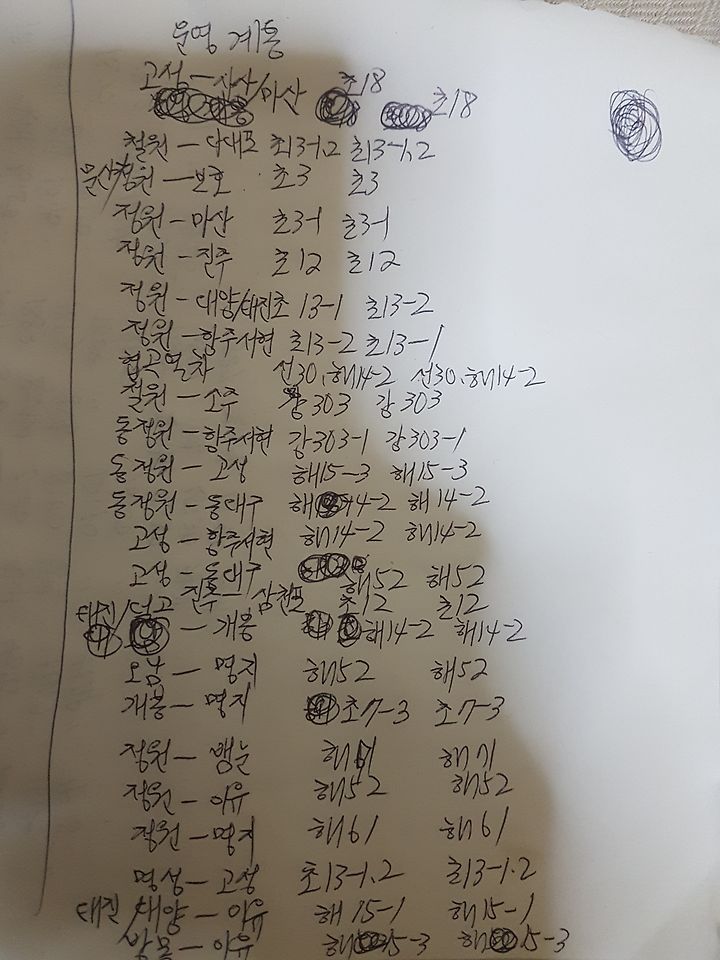 운영 계통
고성 — /마산 초18 초18
철원 — 다대포 초13-1,2 초13-1,2
문산/청원 — 초3 초3
정원 — 마산 초3-1 초3-1
정원 — 진주 초12 초12
정원 — 대양/태진 초 13-1 초13-2
정원 — 항주서현 초13-2 초13-1
협곡열차 선30, 해14-2 선30, 해14-2
철원 — 소주 강303 강303
동정원 — 항주서현 강303-1 강303-1
동정원 — 고성 해15-3 해15-3
동정원 — 동대구 해14-2 해14-2
고성 — 항주서현 해14-2 해14-2
고성 — 동대구 해52 해52
진주 삼천포 초12 초12
태진/덕고 — 개봉 해14-2 해14-2
오남 — 명지 해52 해52
개봉 — 명지 초7-3 초7-3
정원 — 뱅눈 해 해71
정원 — 이유 해52 해52
정원 — 명지 해61 해61
명성 — 고성 초13-1.2 초13-1.2
태진/대양 — 이유 해15-1 해15-1
— 이유 해15-3 해15-3